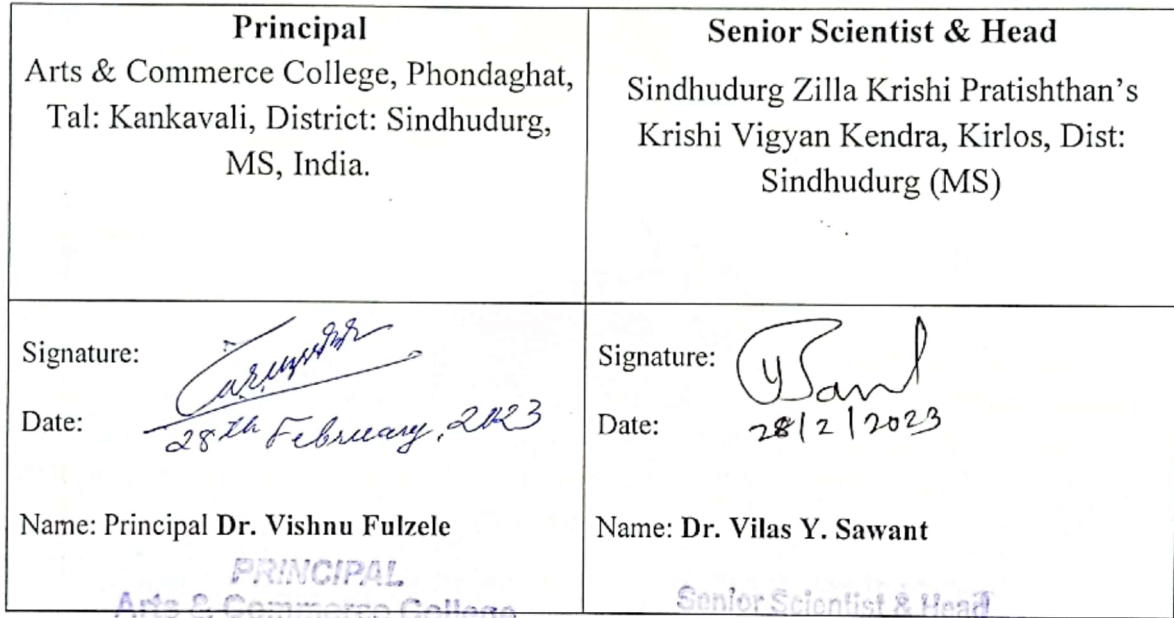 Principal
Arts & Commerce College, Phondaghat,
Tal: Kankavali, District: Sindhudurg,
MS, India.
Senior Scientist & Head
Sindhudurg Zilla Krishi Pratishthan's
Krishi Vigyan Kendra, Kirlos, Dist:
Sindhudurg (MS)
Signature:
Date: 28th February, 2023
Name: Principal Dr. Vishnu Fulzele
PRINCIPAL
Arts & Commerce College
Signature:
Date: 28/2/2023
Name: Dr. Vilas Y. Sawant
Senior Scientist & Head